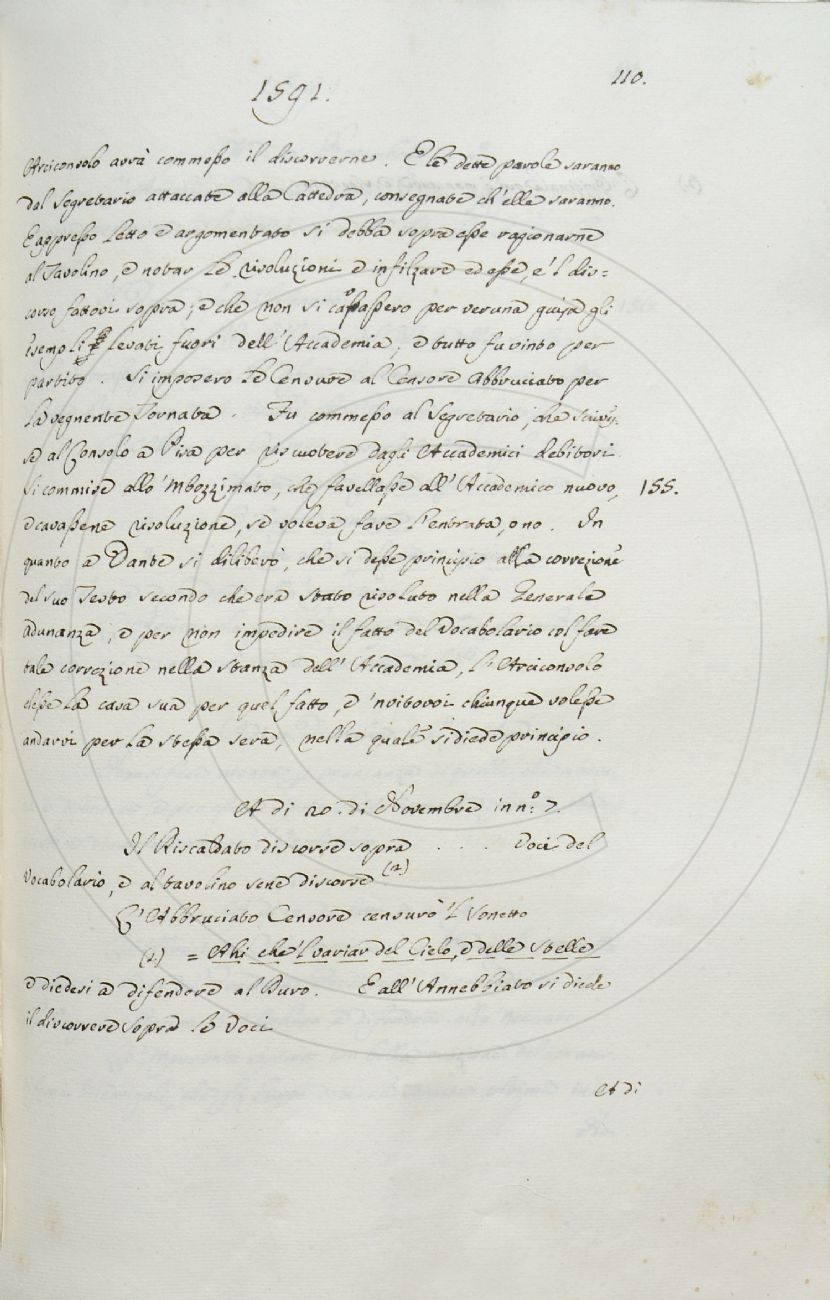 110.
1591.
Arciconsolo avrà commesso il discorrerne. E le dette parole saranno
dal Segretario attaccate alla Cattedra, consegnate ch'elle saranno.
E appresso letto e argomentato si debba sopra esse ragionarne
al Tavolino, e notar le risoluzioni e infilzare ed esse, e 'l dis=
corso fattovi sopra; e che non si
passero per veruna guisa gli
esempli levati fuori dell'Accademia, e tutto fu vinto per
partito. Si imposero le Censure al Censore Abbruciato per
la vegnente Tornata. Fu commesso al Segretario, che scrives-
se al Consolo a Pisa per riscuotere dagli Accademici debitori.
Si commise allo 'Mbozzimato, che favellasse all'Accademico nuovo, 155.
e cavassene risoluzione, se voleva fare l'entrata, o no. In
quanto a Dante si diliberò, che si desse principio alla correzione
del suo Testo secondo che era stato risoluto nella Generale
Adunanza, e per non impedire il fatto del Vocabolario col fare
tale correzione nella stanza dell'Accademia, l'Arciconsolo
elesse la casa sua per quel fatto, e 'nvitovvi chiunque volesse
andarvi per la stessa sera, nella quale si diede principio.
A di 20. di Novembre in n.° 7.
Il Riscaldato discorse sopra . . . Voci del
Vocabolario, e al tavolino sene discorse (2)
L'Abbruciato Censore censurò 'l Sonetto
(2) = Ahi che 'l variar del Cielo, e delle Stelle
e diedesi a difendere al Duro. E all'Annebbiato si diede
il discorrere sopra le Voci
A di